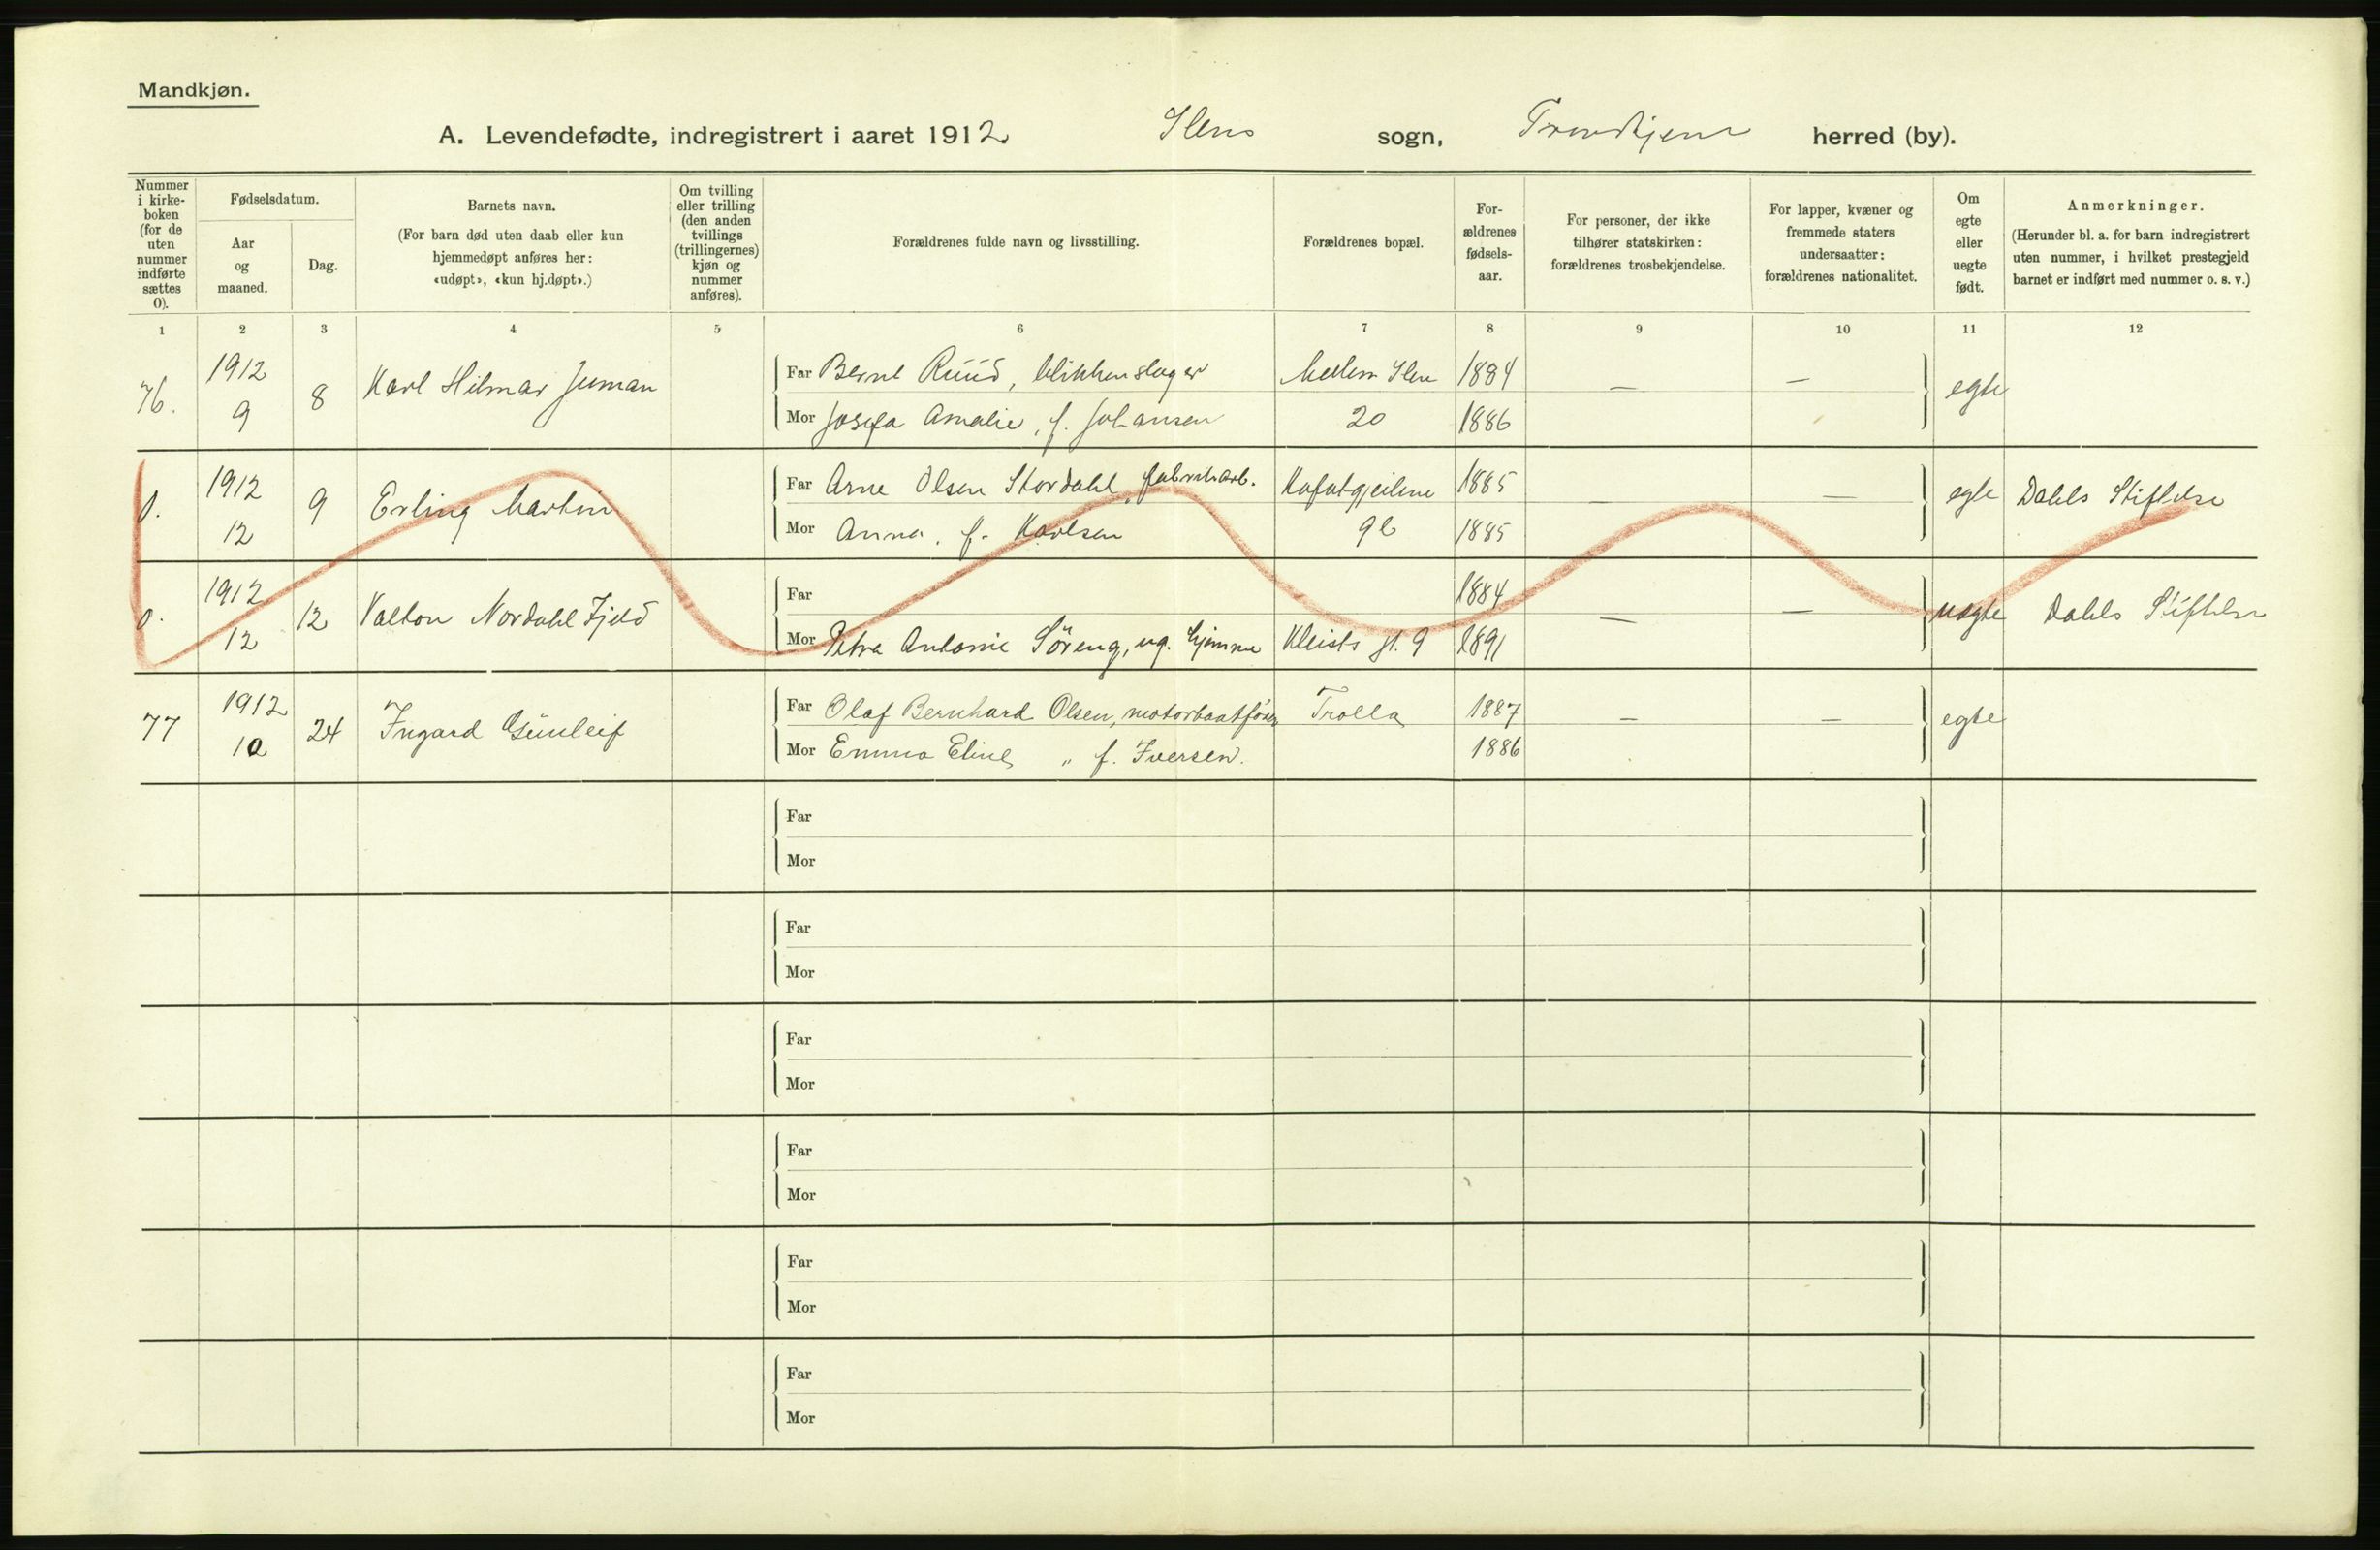 Mandkjøn.
A. Levendefødte, indregistrert i aaret 1912 Ilens sogn, Trondhjem herred (by).
Nummer i kirke-boken (for de uten nummer indførte sættes 0).
Fødselsdatum.
Aar og maaned.
Dag.
Barnets navn.
(For barn død uten daab eller kun hjemmedøpt anføres her: «udøpt», «kun hj.døpt».)
Om tvilling eller trilling (den anden tvillings (trillingernes) kjøn og nummer anføres).
Forældrenes fulde navn og livsstilling.
Forældrenes bopæl.
For-ældrenes fødsels-aar.
For personer, der ikke tilhører statskirken: forældrenes trosbekjendelse.
For lapper, kvæner og fremmede staters undersaatter: forældrenes nationalitet.
Om egte eller uegte født.
Anmerkninger.
(Herunder bl. a. for barn indregistrert uten nummer, i hvilket prestegjeld barnet er indført med nummer o. s. v.)
1 2 3 4 5 6 7 8 9 10 11 12
76. 1912 9 8 Karl Hilmar
Far Bernt Ruud, blikkenslager Mellem Ilen 1884 — — egte
Mor Josefa Amalie, f. Johansen 20 1886
0. 1912 12 9 Erling Martin
Far Arne Olsen Stordahl, fabrikarb. 1885 — — egte Dahls Stiftelse
Mor Anna, f. Karlsen 9b 1885
0. 1912 12 12 Valton Nordahl Fjeld
Far 1884 — — uegte Dahls Stiftelse
Mor Petra Antonie Söreng, ug. hjemme Kleists gt. 9 1891
77 1912 10 24 Ingard Gunleif
Far Olaf Bernhard Olsen, motorbaatfører Trolla 1887 — — egte
Mor Emma Eline „ f. Iversen. 1886
Far
Mor
Far
Mor
Far
Mor
Far
Mor
Far
Mor
Far
Mor